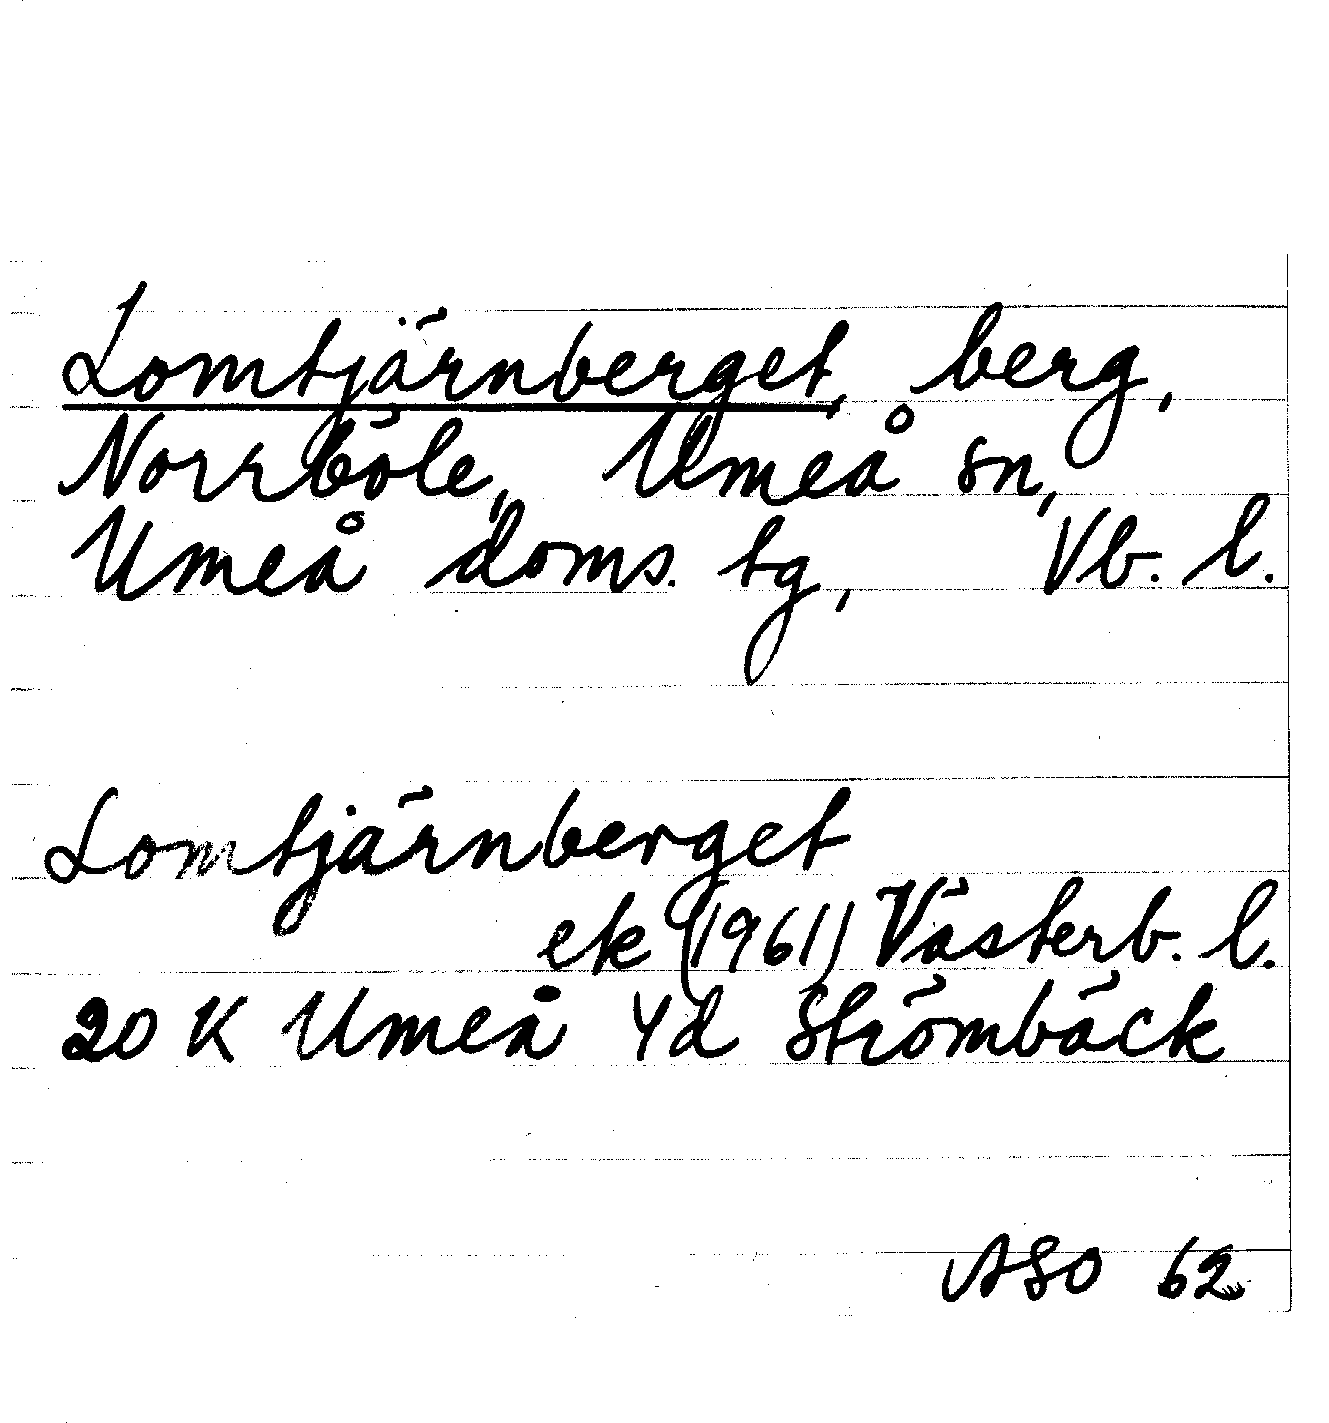 Lomtjärnberget, berg,
Norrböle, Umeå sn,
Umeå doms. tg, Vb. l.
Lomtjärnberget
ek (1961) Västerb. l.
20 K Umeå 4d Strömbäck
ASO 62